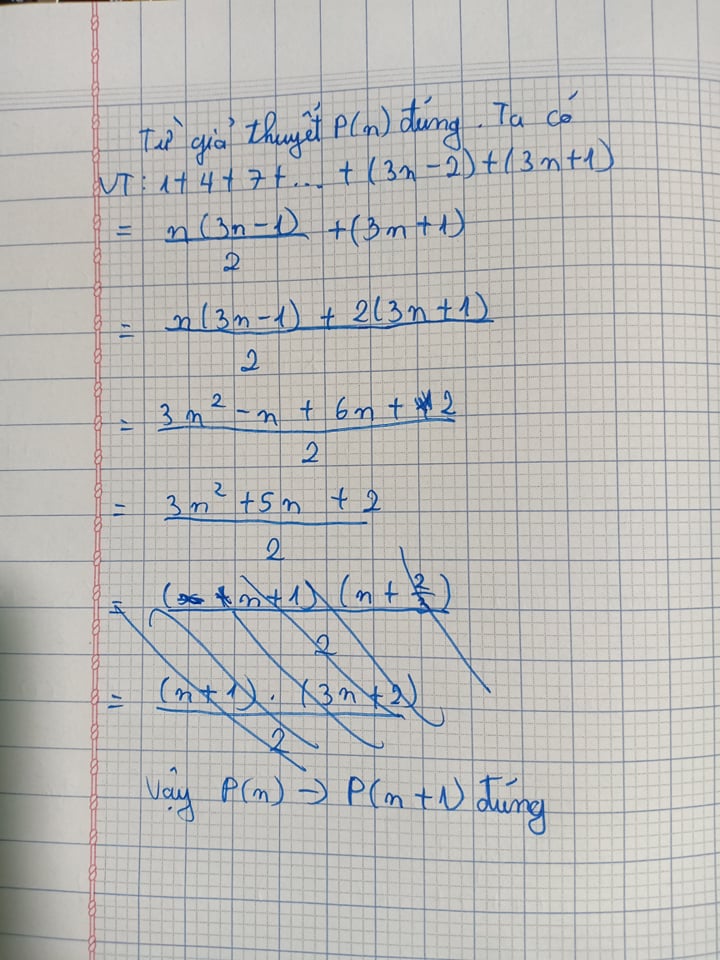 Từ giả thuyết P(n) đúng. Ta có
VT: 1 + 4 + 7 + ... + (3n - 2) + (3n + 1)
= n(3n - 1)/2 + (3n + 1)
= n(3n - 1) + 2(3n + 1)/2
= 3n² - n + 6n + 2/2
= 3n² + 5n + 2/2
= (n + 1) (n + 2/3)/2
= (n + 1) . (3n + 2)/2
Vậy P(n) → P(n + 1) đúng